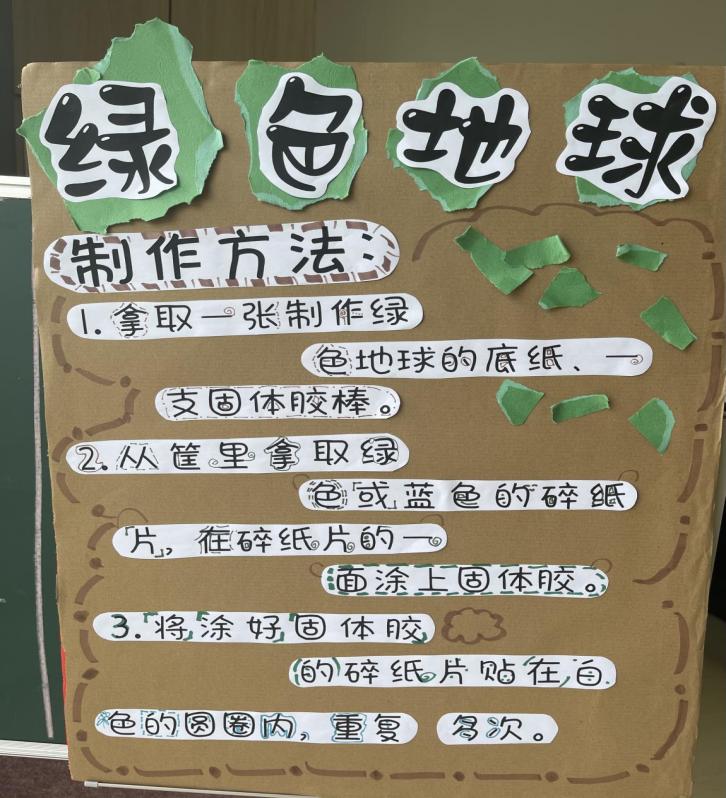 绿色地球
制作方法:
1.拿取一张制作绿
色地球的底纸、一
支固体胶棒。
2.从筐里拿取绿
色或蓝色的碎纸
片,在碎纸片的一
面涂上固体胶。
3.将涂好固体胶
的碎纸片贴在白
色的圆圈内,重复 多次。